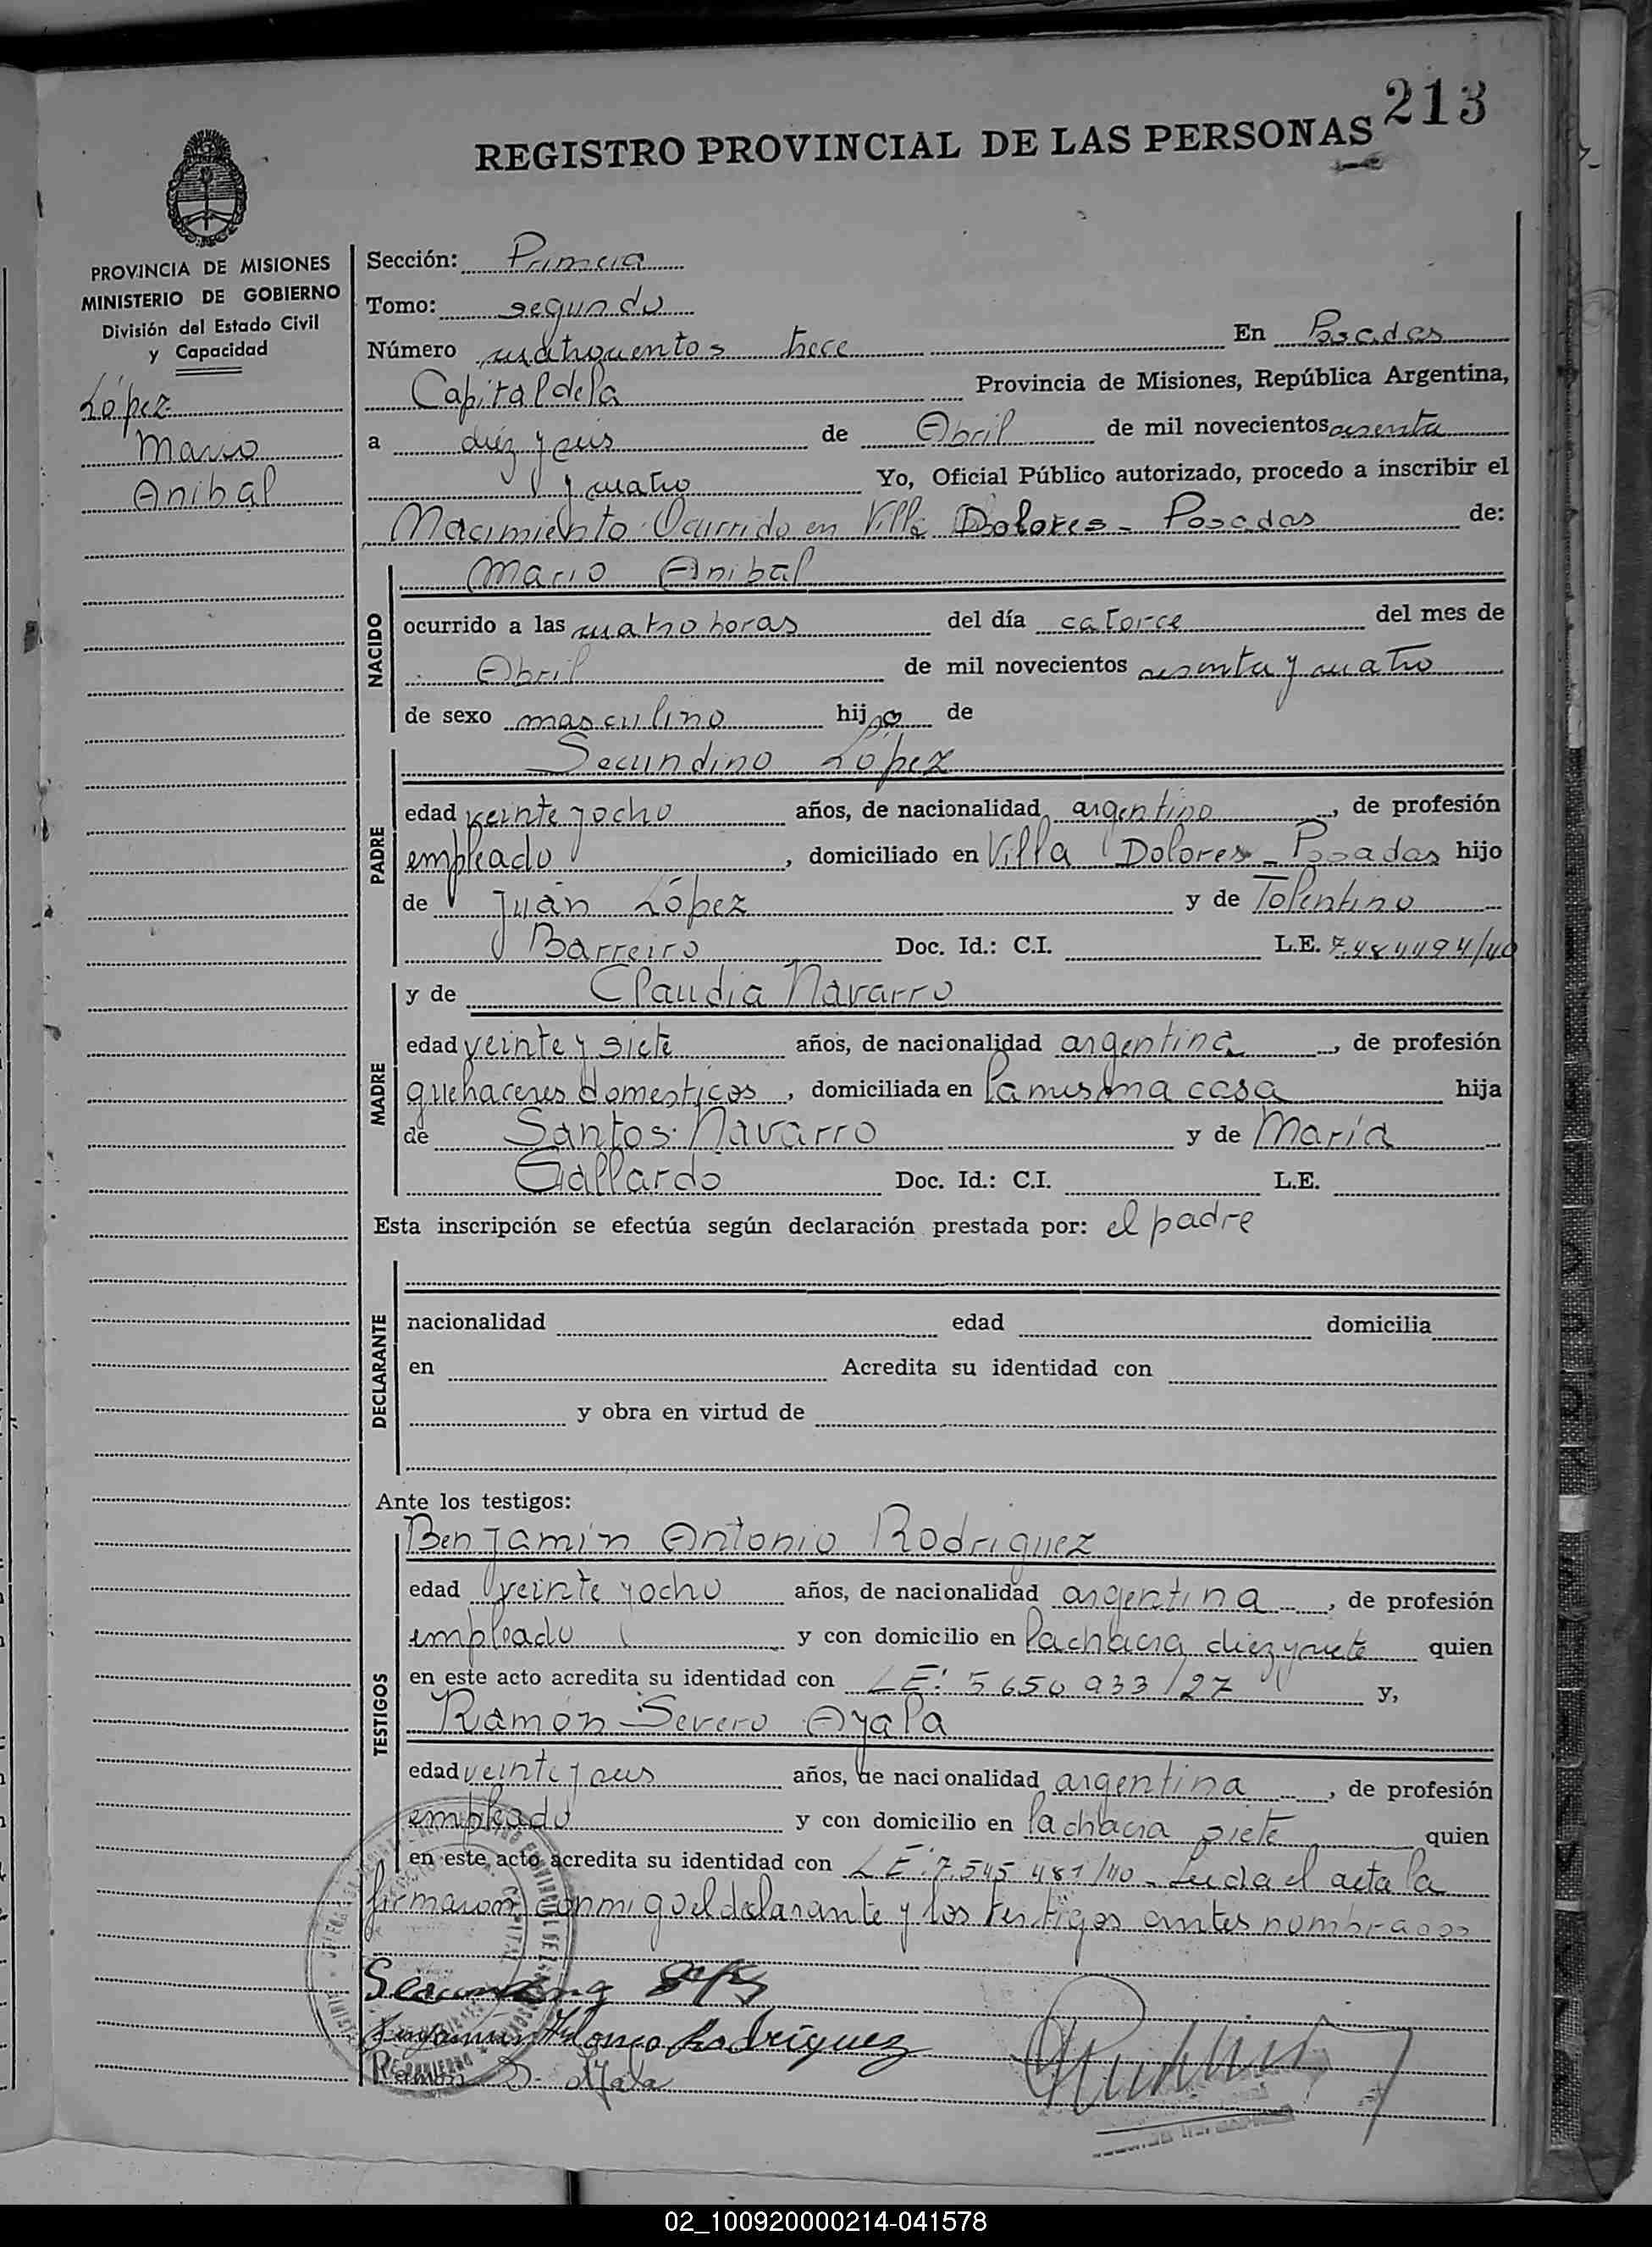 213
REGISTRO PROVINCIAL DE LAS PERSONAS
PROVINCIA DE MISIONES
MINISTERIO DE GOBIERNO
División del Estado Civil
y Capacidad
López
Mario
Anibal
Sección: Primera
Tomo: segundo
Número cuatrocientos trece En Posadas
Capital de la Provincia de Misiones, República Argentina,
a diez y seis de Abril de mil novecientos sesenta
y cuatro Yo, Oficial Público autorizado, procedo a inscribir el
Nacimiento Ocurrido en Villa Dolores - Posadas de:
NACIDO
Mario Anibal
ocurrido a las cuatro horas del día catorce del mes de
Abril de mil novecientos sesenta y cuatro
de sexo masculino hijo de
PADRE
Secundino López
edad veinte y ocho años, de nacionalidad argentino, de profesión
empleado, domiciliado en Villa Dolores - Posadas hijo
de Juan López y de Tolentino
Barreiro Doc. Id.: C.I. L.E.
MADRE
y de Claudia Navarro
edad veinte y siete años, de nacionalidad argentina, de profesión
quehaceres domesticos, domiciliada en la misma casa hija
de Santos Navarro y de María
Gallardo Doc. Id.: C.I. L.E.
Esta inscripción se efectúa según declaración prestada por: el padre
DECLARANTE
nacionalidad edad domicilia
en Acredita su identidad con
y obra en virtud de
Ante los testigos:
TESTIGOS
Benjamín Antonio Rodriguez
edad veinte y ocho años, de nacionalidad argentina, de profesión
empleado y con domicilio en la chacra diez y siete quien
en este acto acredita su identidad con LE: 5650933/27 y,
Ramón Severo Ayala
edad veinte y seis años, de nacionalidad argentina, de profesión
empleado y con domicilio en la chacra siete quien
en este acto acredita su identidad con LE: 7.545.481/40 - Leida el acta la
firmaron conmigo el declarante y los testigos antes nombrados
Rodriguez
Ramón S. Ayala
02_100920000214-041578